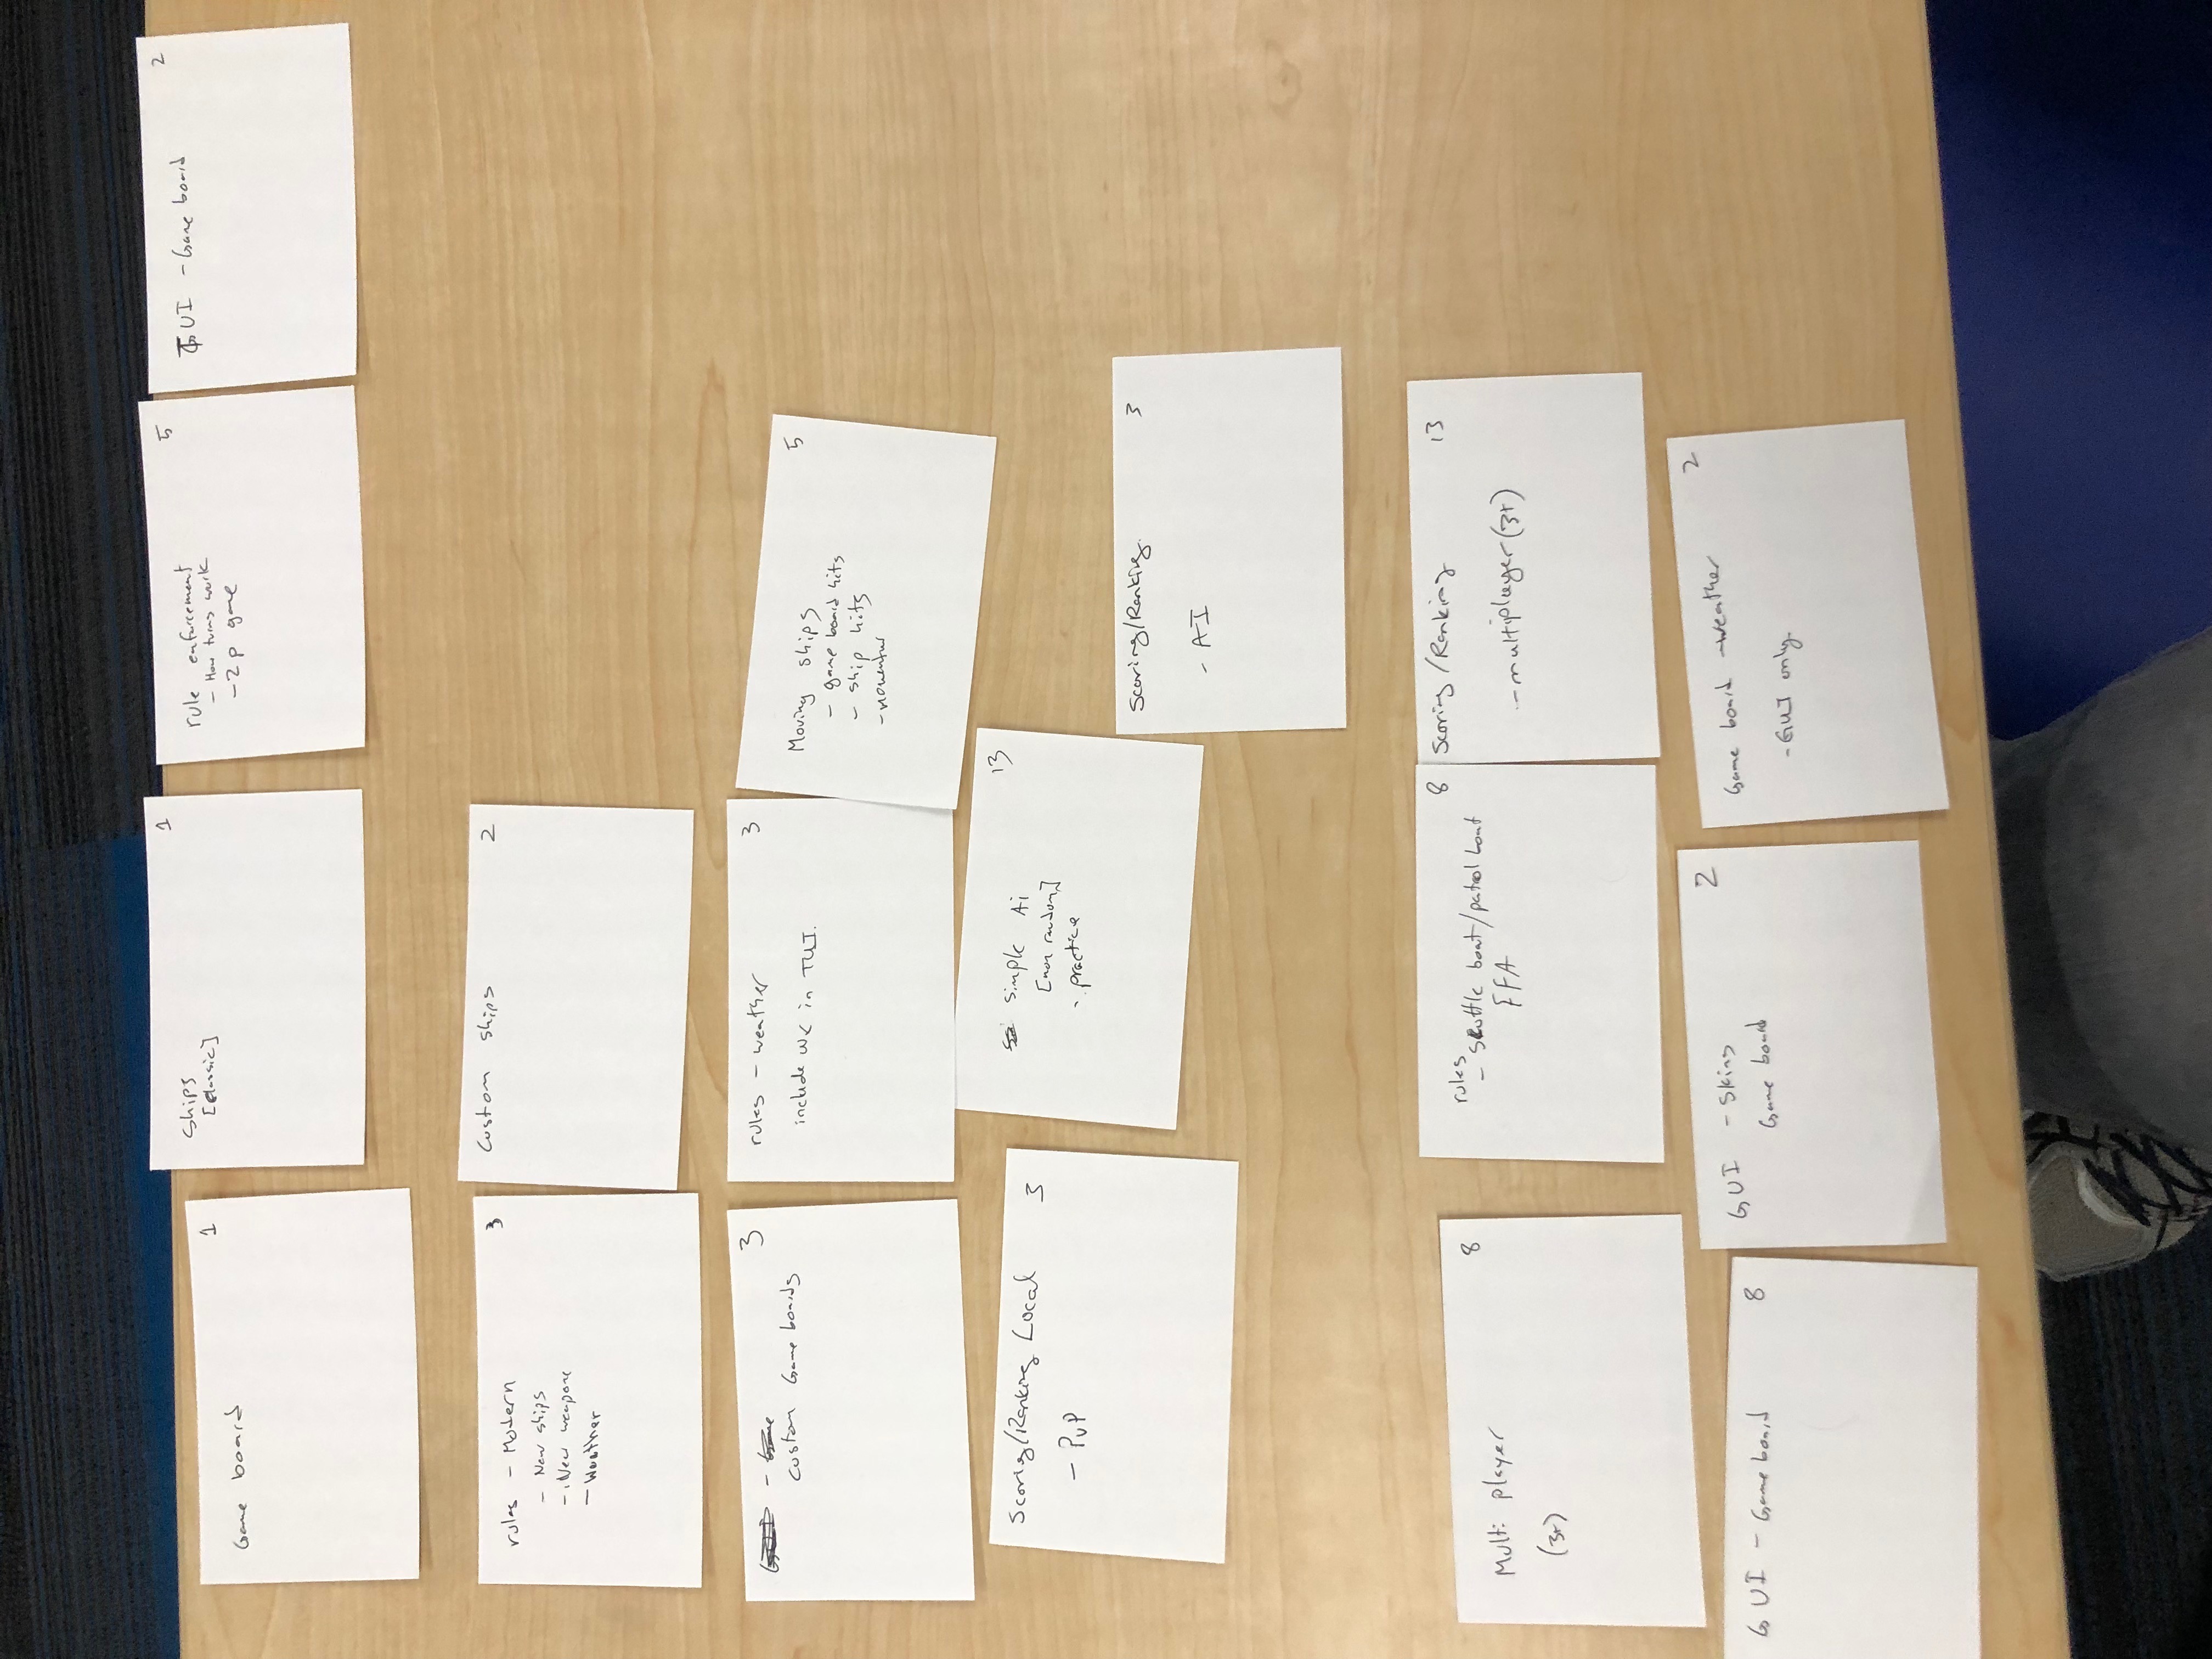 Game board 1
ships 1
[classic]
rule enforcement 5
- How turns work
- 2p game
TUI - Game board 2
rules - Modern 3
- New ships
- New weapons
- Weather
Custom ships 2
Custom Game boards 3
rules - weather 3
include wx in TUI.
Moving ships 5
- game board hits
- ship hits
- momentum
Scoring/Ranking Local 3
- PvP
simple Ai 13
[non random]
- practice
Scoring/Ranking 3
- AI
Multi player 8
(3+)
rules 8
- Scuttle boat/patrol boat
FFA
Scoring/Ranking 13
- multiplayer (3+)
GUI - Game board 8
GUI - Skins 2
Game board
Game board - weather 2
- GUI only